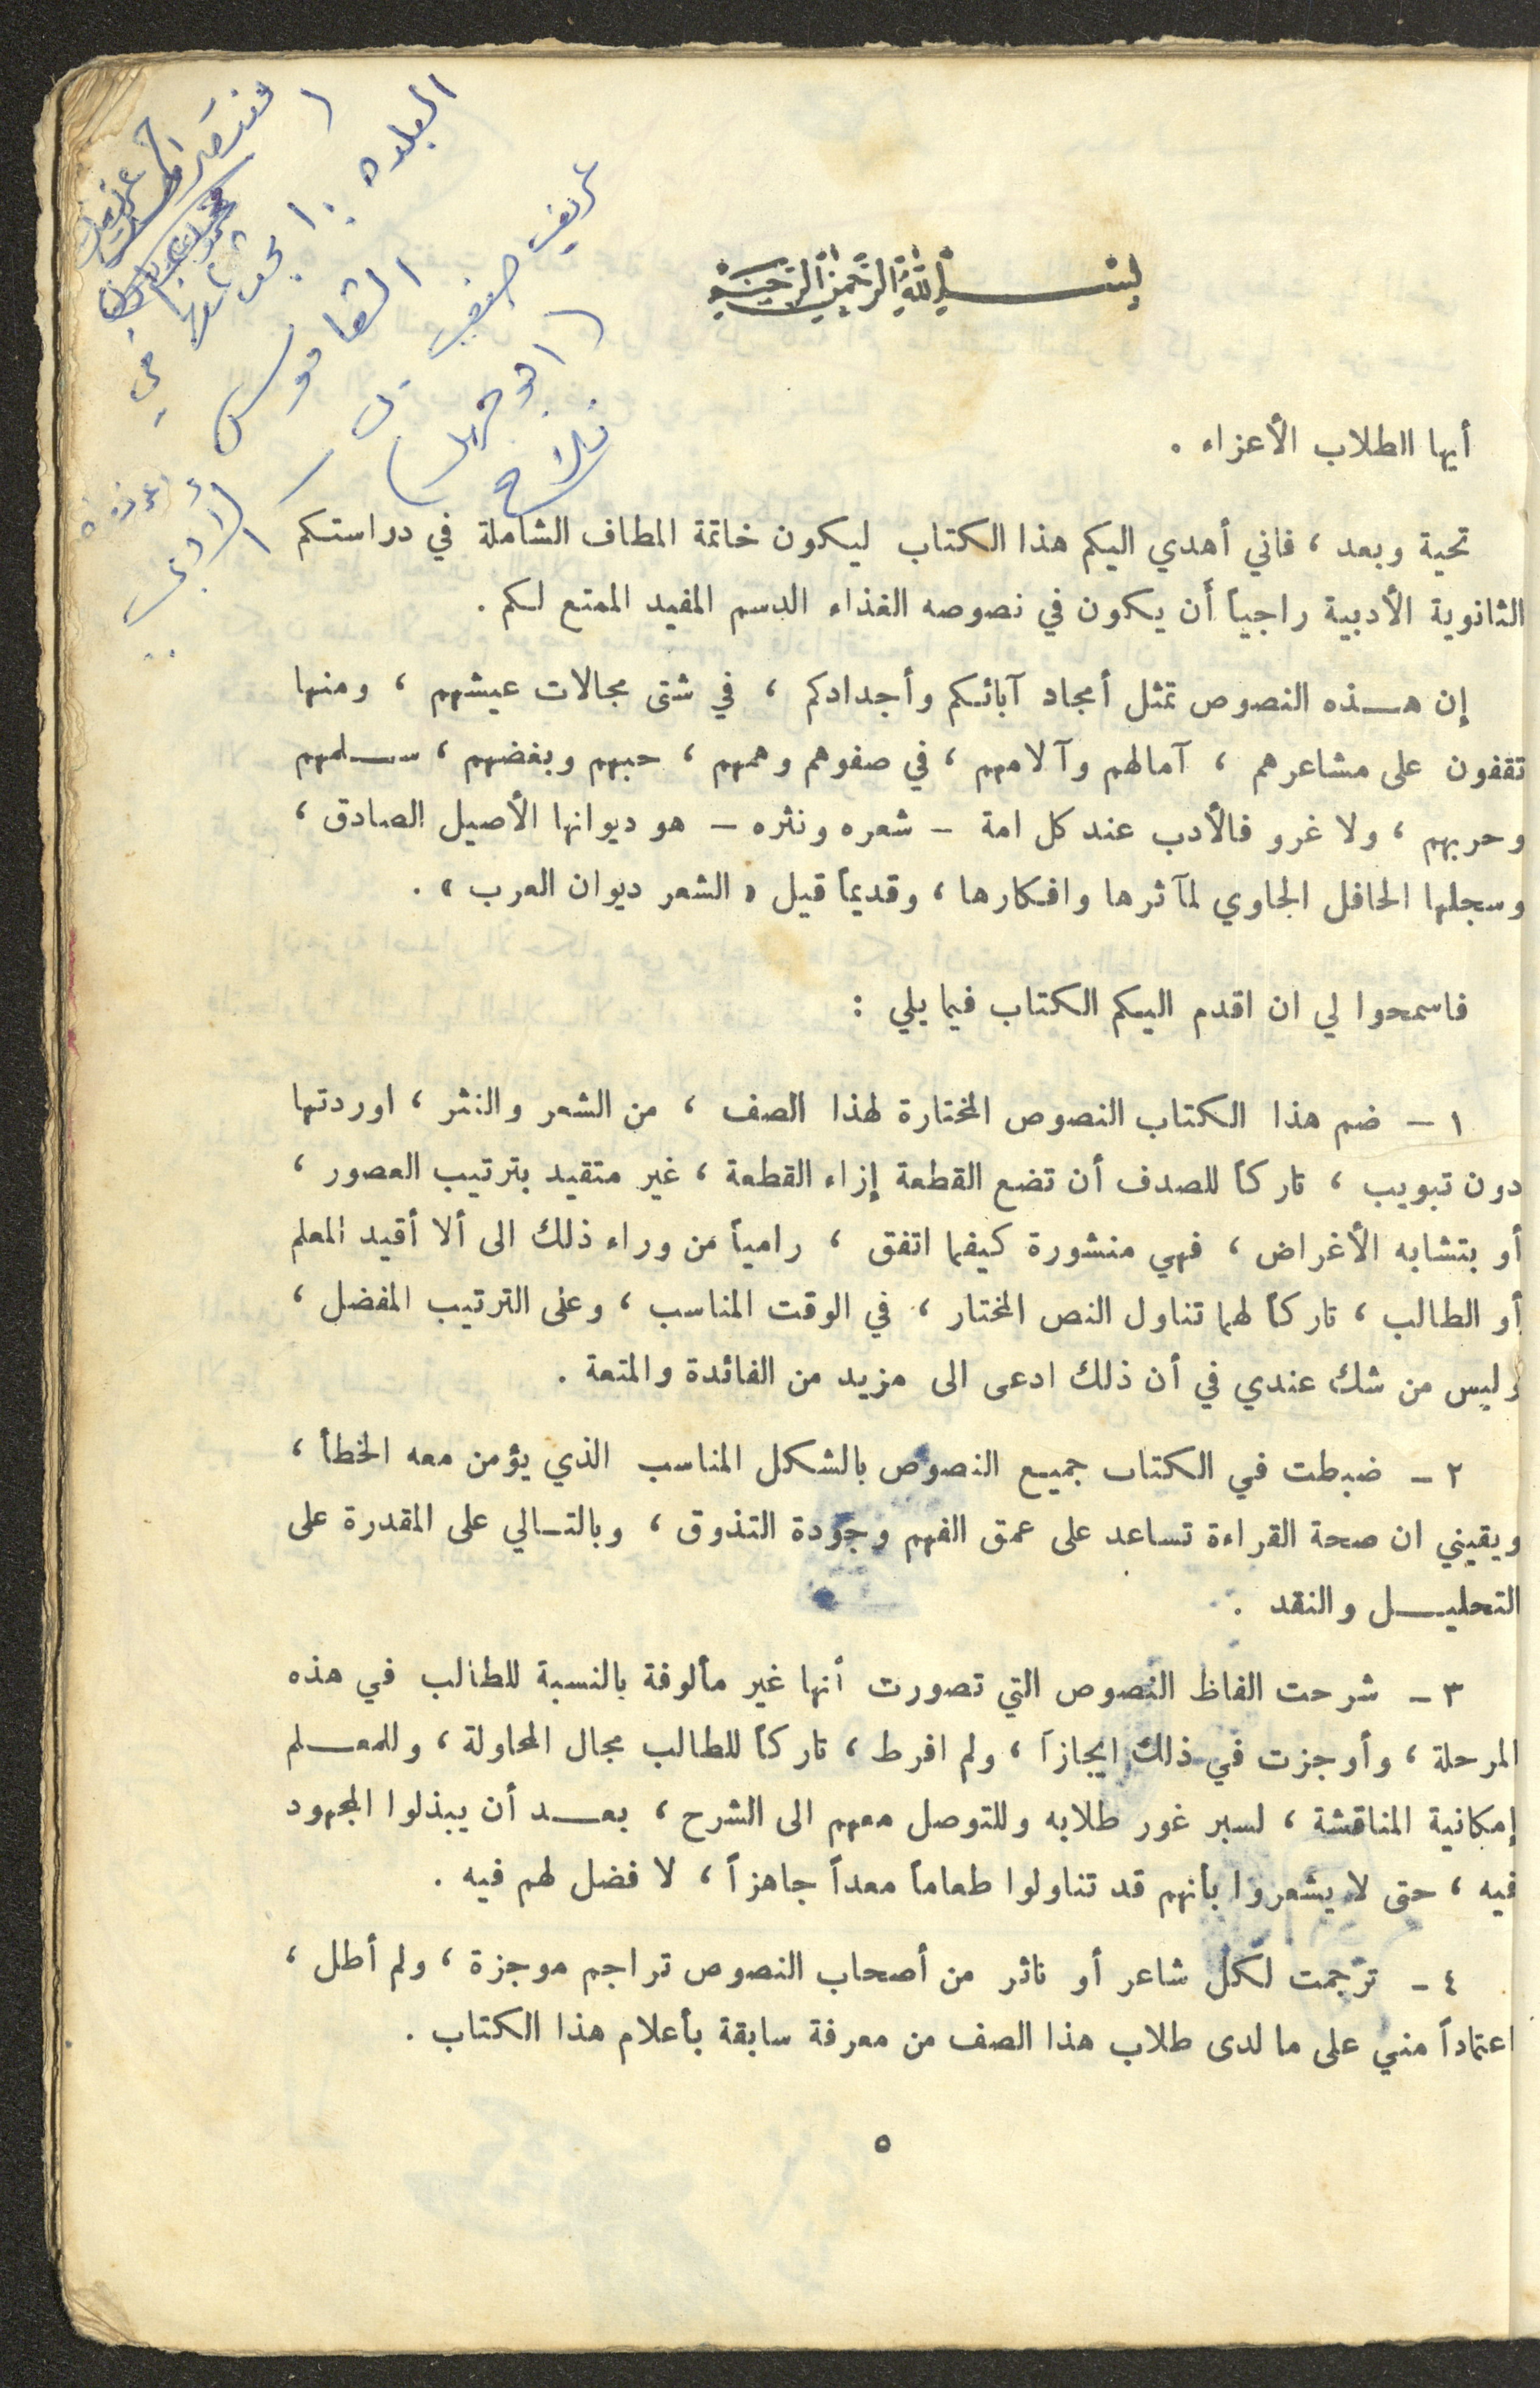 بسم الله الرحمن الرحيم
أيها الطلاب الأعزاء .
تحية وبعد ، فاني أهدي اليكم هذا الكتاب ليكون خاتمة المطاف الشاملة في دراستكم
الثانوية الأدبية راجياً أن يكون في نصوصه الغذاء الدسم المفيد الممتع لكم .
إن هذه النصوص تمثل أمجاد آبائكم وأجدادكم ، في شتى مجالات عيشهم ، ومنها
تقفون على مشاعرهم ، آمالهم وآلامهم ، في صفوهم وهمهم ، حبهم وبغضهم ، سلمهم
وحربهم ، ولا غرو فالأدب عند كل امة – شعره ونثره – هو ديوانها الأصيل الصادق ،
وسجلها الحافل الحاوي لمآثرها وافكارها ، وقديماً قيل « الشعر ديوان العرب » .
فاسمحوا لي ان اقدم اليكم الكتاب فيما يلي :
١ – ضم هذا الكتاب النصوص المختارة لهذا الصف ، من الشعر والنثر ، اوردتها
دون تبويب ، تاركاً للصدف أن تضع القطعة إزاء القطعة ، غير متقيد بترتيب العصور ،
أو بتشابه الأغراض ، فهي منشورة كيفما اتفق ، رامياً من وراء ذلك الى ألا أقيد المعلم
أو الطالب ، تاركاً لهما تناول النص المختار ، في الوقت المناسب ، وعلى الترتيب المفضل ،
وليس من شك عندي في أن ذلك ادعى الى مزيد من الفائدة والمتعة .
٢ – ضبطت في الكتاب جميع النصوص بالشكل المناسب الذي يؤمن معه الخطأ ،
ويقيني ان صحة القراءة تساعد على عمق الفهم وجودة التذوق ، وبالتالي على المقدرة على
التحليل والنقد .
٣ – شرحت الفاظ النصوص التي تصورت أنها غير مألوفة بالنسبة للطالب في هذه
المرحلة ، وأوجزت في ذلك ايجازاً ، ولم افرط ، تاركاً للطالب مجال المحاولة ، وللمعلم
إمكانية المناقشة ، لسبر غور طلابه وللتوصل معهم الى الشرح ، بعد أن يبذلوا المجهود
فيه ، حتى لا يشعروا بأنهم قد تناولوا طعاماً معداً جاهزاً ، لا فضل لهم فيه .
٤ – ترجمت لكل شاعر أو ناثر من أصحاب النصوص تراجم موجزة ، ولم أطل ،
اعتماداً مني على ما لدى طلاب هذا الصف من معرفة سابقة بأعلام هذا الكتاب .
٥